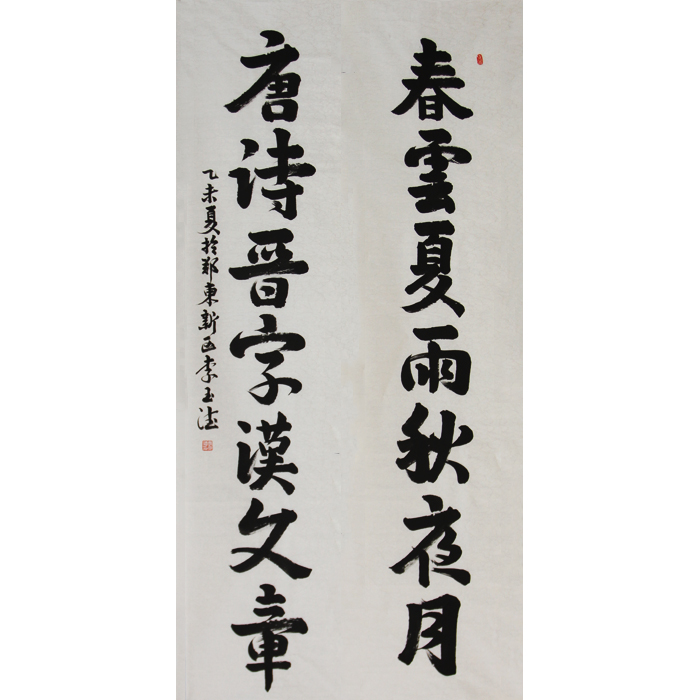 春雲夏雨秋夜月
唐詩晋字漢文章
乙未夏於鄭東新区李玉法